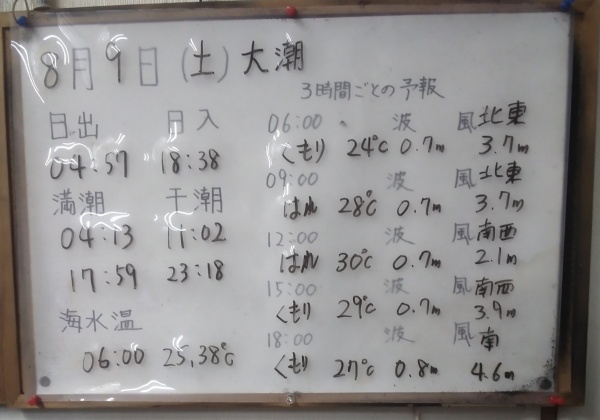 8月9日(土)大潮
3時間ごとの予報
日出 日入
04:57 18:38
満潮 干潮
04:13 11:02
17:59 23:18
海水温
06:00 25,38℃
06:00 波 風北東
くもり 24℃ 0.7m 3.7m
09:00 波 風北東
はれ 28℃ 0.7m 3.7m
12:00 波 風南西
はれ 30℃ 0.7m 2.1m
15:00 波 風南西
くもり 29℃ 0.7m 3.9m
18:00 波 風南
くもり 27℃ 0.8m 4.6m